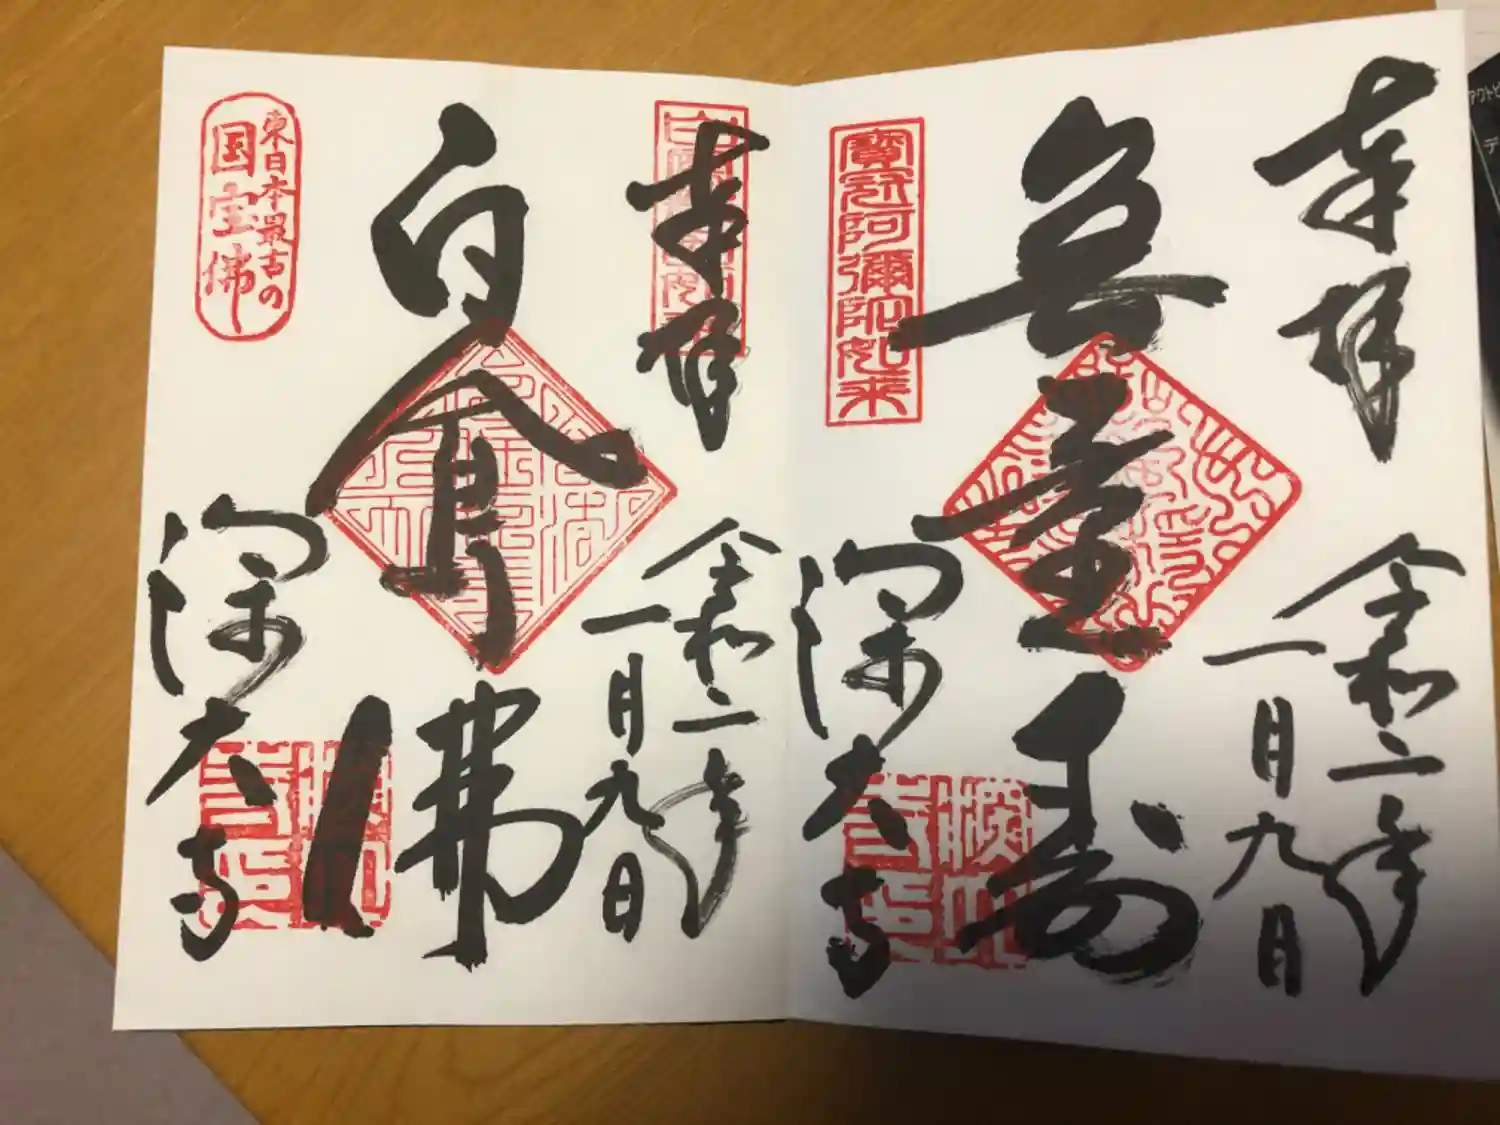 奉拝
令和二年
一月九日
無量壽
寶冠阿彌陀如来
深大寺
奉拝
令和二年
一月九日
白鳳佛
東日本最古の
国宝佛
深大寺